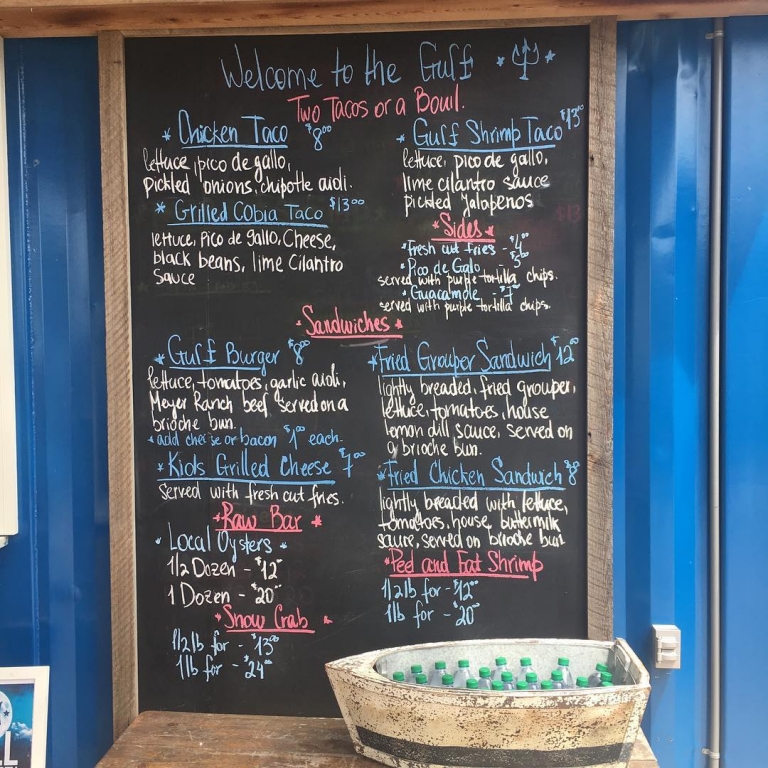 Welcome to the Gulf
Two Tacos or a Bowl.
* Chicken Taco $8⁰⁰
lettuce, pico de gallo,
pickled onions, chipotle aioli.
* Grilled Cobia Taco $13⁰⁰
lettuce, Pico de Gallo, Cheese,
black beans, lime Cilantro
Sauce
* Gulf Shrimp Taco $13⁰⁰
lettuce, pico de gallo,
lime cilantro sauce
pickled Jalapenos
* Sides *
* Fresh cut fries - $4⁰⁰
* Pico de Galo
served with purple tortilla chips.
* Guacamole
served with purple tortilla chips.
* Sandwiches *
* Gulf Burger $8⁰⁰
lettuce, tomatoes, garlic aioli,
Meyer Ranch beef served on a
brioche bun.
* add cheese or bacon $1⁰⁰ each.
* Kids Grilled Cheese $7⁰⁰
Served with fresh cut fries.
* Fried Grouper Sandwich $12⁰⁰
lightly breaded, fried grouper,
lettuce, tomatoes, house
lemon dill sauce, served on
a brioche bun.
* Fried Chicken Sandwich $8
lightly breaded with lettuce,
tomatoes, house, buttermilk
sauce, served on brioche bun
* Raw Bar *
* Local Oysters *
1/2 Dozen - $12
1 Dozen - $20
* Snow Crab *
1/2 lb for - $13⁰⁰
1 lb for - $24⁰⁰
* Peel and Eat Shrimp
1/2 lb for - $12
1 lb for - $20